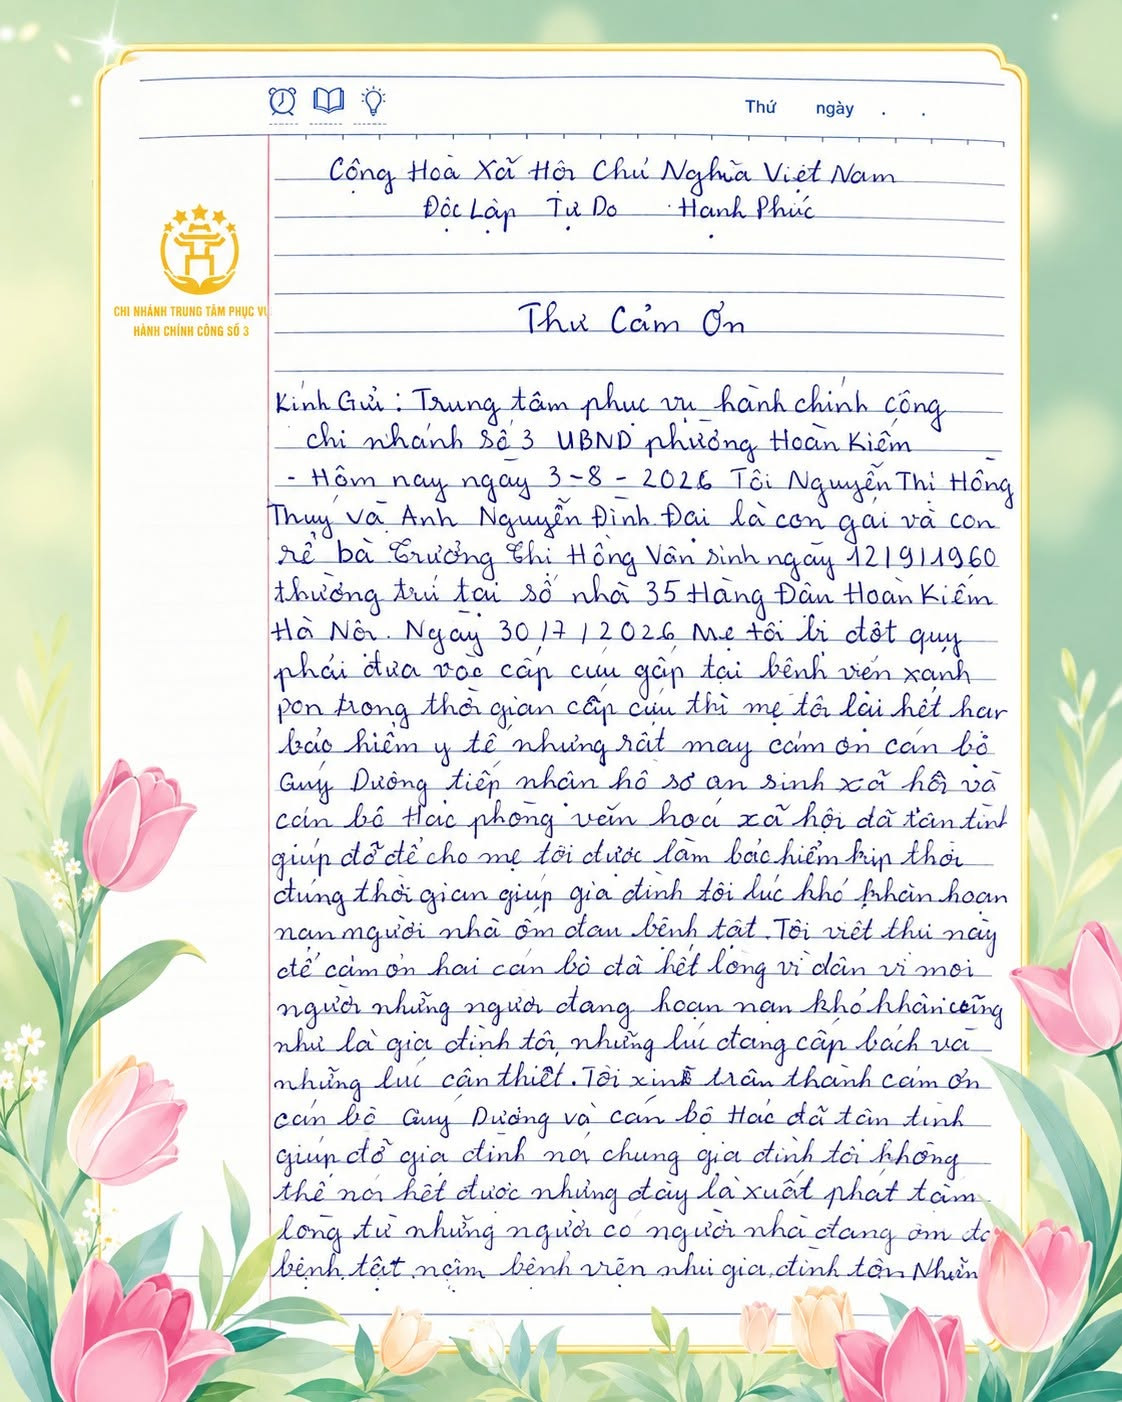 Thứ ngày . .
Cộng Hoà Xã Hội Chủ Nghĩa Việt Nam
Độc Lập Tự Do Hạnh Phúc
CHI NHÁNH TRUNG TÂM PHỤC VỤ
HÀNH CHÍNH CÔNG SỐ 3
Thư Cảm Ơn
Kính Gửi : Trung tâm phục vụ hành chính công
chi nhánh số 3 UBND phường Hoàn Kiếm
- Hôm nay ngày 3-8-2026 Tôi Nguyễn Thị Hồng
Thuý và Anh Nguyễn Đình Đại là con gái và con
rể bà Trương Thị Hồng Vân sinh ngày 12/9/1960
thường trú tại số nhà 35 Hàng Đậu Hoàn Kiếm
Hà Nội. Ngày 30/7/2026 Mẹ tôi bị đột quỵ
phải đưa vào cấp cứu gấp tại bệnh viện xanh
pon trong thời gian cấp cứu thì mẹ tôi lại hết hạn
bảo hiểm y tế nhưng rất may cảm ơn cán bộ
Quý Dương tiếp nhận hồ sơ an sinh xã hội và
cán bộ Hạc phòng văn hoá xã hội đã tận tình
giúp đỡ để cho mẹ tôi được làm bảo hiểm kịp thời
đúng thời gian giúp gia đình tôi lúc khó khăn hoạn
nạn người nhà ốm đau bệnh tật. Tôi viết thư này
để cảm ơn hai cán bộ đã hết lòng vì dân vì mọi
người những người đang hoạn nạn khó khăn cũng
như là gia đình tôi, những lúc đang cấp bách và
những lúc cần thiết. Tôi xin trân thành cảm ơn
cán bộ Quý Dương và cán bộ Hạc đã tận tình
giúp đỡ gia đình nói chung gia đình tôi không
thể nói hết được nhưng đây là xuất phát tâm
lòng từ những người có người nhà đang ốm
bệnh tật nằm bệnh viện như gia đình tôi. Nhân